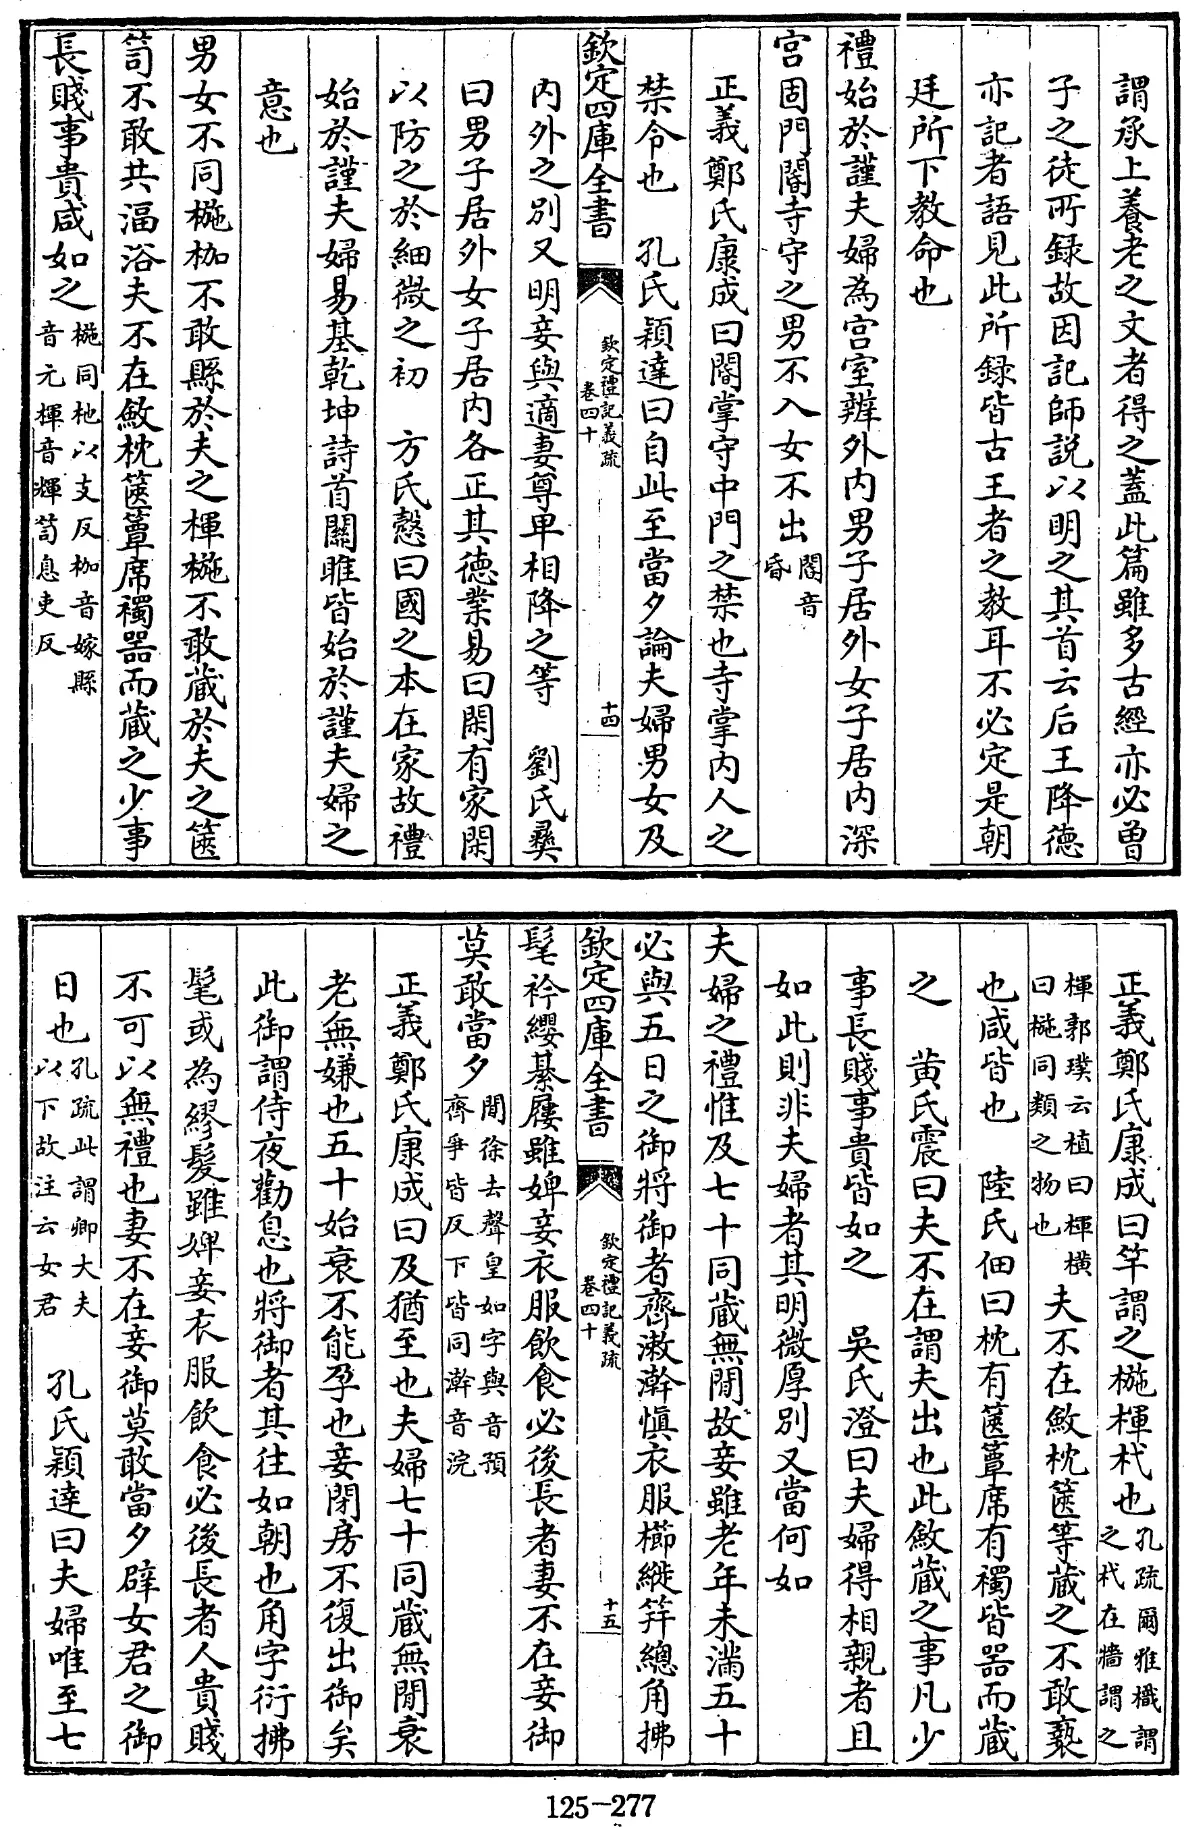 謂承上養老之文者得之蓋此篇雖多古經亦必曾
子之徒所録故因記師説以明之其首云后王降德
亦記者語見此所録皆古王者之教耳不必定是朝
廷所下教命也
禮始於謹夫婦為宫室辨外内男子居外女子居内深
宫固門閽寺守之男不入女不出閽音
昏
正義鄭氏康成曰閽掌守中門之禁也寺掌内人之
禁令也　孔氏穎達曰自此至當夕論夫婦男女及
欽定四庫全書
欽定禮記義疏
卷四十
十四
内外之别又明妾與適妻尊卑相降之等　劉氏彝
曰男子居外女子居内各正其德業易曰閑有家閑
以防之於細微之初　方氏慤曰國之本在家故禮
始於謹夫婦易基乾坤詩首關雎皆始於謹夫婦之
意也
男女不同椸枷不敢縣於夫之楎椸不敢藏於夫之篋
笥不敢共湢浴夫不在斂枕篋簟席襡器而藏之少事
長賤事貴咸如之椸同杝以支反枷音嫁縣
音元楎音輝笥息吏反
正義鄭氏康成曰竿謂之椸楎杙也孔疏爾雅樴謂
之杙在牆謂之
楎郭璞云植曰楎横
曰椸同類之物也夫不在斂枕篋等藏之不敢褻
也咸皆也　陸氏佃曰枕有篋簟席有襡皆器而藏
之　黄氏震曰夫不在謂夫出也此斂藏之事凡少
事長賤事貴皆如之　吳氏澄曰夫婦得相親者且
如此則非夫婦者其明微厚别又當何如
夫婦之禮惟及七十同藏無閒故妾雖老年未滿五十
必與五日之御將御者齊漱澣慎衣服櫛縰筓總角拂
欽定四庫全書
欽定禮記義疏
卷四十
十五
髦衿纓綦屨雖婢妾衣服飲食必後長者妻不在妾御
莫敢當夕閒徐去聲皇如字與音預
齊爭皆反下皆同澣音浣
正義鄭氏康成曰及猶至也夫婦七十同藏無閒衰
老無嫌也五十始衰不能孕也妾閉房不復出御矣
此御謂侍夜勸息也將御者其往如朝也角字衍拂
髦或為繆髮雖婢妾衣服飲食必後長者人貴賤
不可以無禮也妻不在妾御莫敢當夕辟女君之御
日也孔疏此謂卿大夫
以下故注云女君　孔氏穎達曰夫婦唯至七
125-277